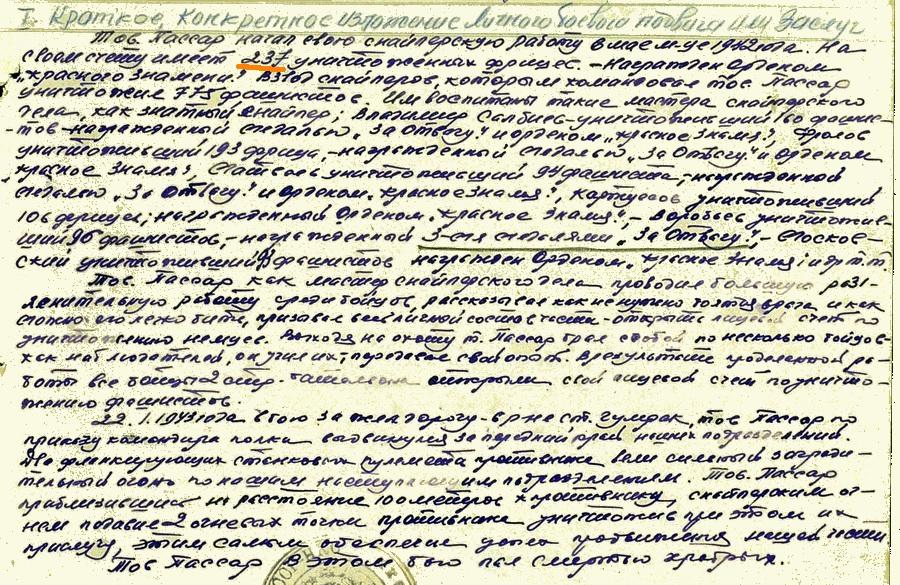 I. Краткое, конкретное изложение личного боевого подвига или заслуг
Тов. Пассар начал свою снайперскую работу в мае м-це 1942 года. На
своем счету имеет 237 уничтоженных фрицев. - Награжден Орденом
„Красного Знамени“. Взвод снайперов, которым командовал тов. Пассар
уничтожил 775 фашистов. Им воспитаны такие мастера снайперского
дела, как знатный снайпер; Владимир Салбиев - уничтоживший 160 фашис-
тов - награжденный медалью „За Отвагу“ и орденом „Красное Знамя“, Фролов
уничтоживший 193 фрица, - награжденный медалью „За Отвагу“ и Орденом
Красное Знамя“, уничтоживший 94 фашиста, награжденный
медалью „За Отвагу“ и Орденом „Красное Знамя“, уничтоживший
106 фрицев; награжденный Орденом „Красное Знамя“, - Воробьев уничтожив-
ший 96 фашистов, - награжденный 3-мя медалями „За Отвагу“, -
ский уничтоживший фашистов награжден Орденом „Красное Знамя“ и др. т.т.
Тов. Пассар, как мастер снайперского дела проводил большую разъ-
яснительную работу среди бойцов, рассказывая как не нужно бояться врага и как
можно его легко бить, призывая весь личной состав части - открыть лицевой счет по
уничтожению немцев. Выходя на охоту т. Пассар брал с собой по несколько бойцов -
как наблюдателей, он учил их, передавал свой опыт. В результате проделанной ра-
боты все бойцы 2 стр. батальона открыли свой лицевой счет по уничто-
жению фашистов.
22.1.1943 года в бою за жел дорогу - в р-не ст. Гумрак, тов Пассар по
приказу командира полка выдвинулся за передний край наших подразделений.
Два фланкирующих станковых пулемета противника вели сильный загради-
тельный огонь по нашим наступающим подразделениям. Тов. Пассар
приблизившись на расстояние 100 метров к противнику, снайперским ог-
нем подавил 2 огневых точки противника уничтожив при этом их
прислугу, этим самым обеспечив успех продвижения нашей части
Тов Пассар в этом бою пал смертью храбрых.